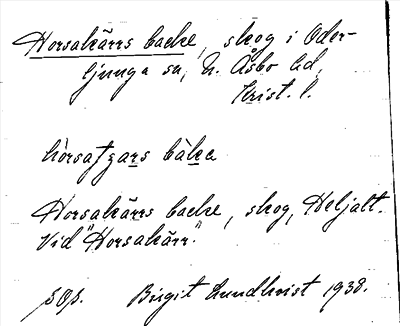 Horsakärrs backe, skog i Oder-
ljunga sn, N. Åsbo hd,
Krist. l.
hòrsatzars bàke
Horsakärrs backe, skog, Heljalt.
Vid "Horsakärr".
Birgit Lundkvist 1938.